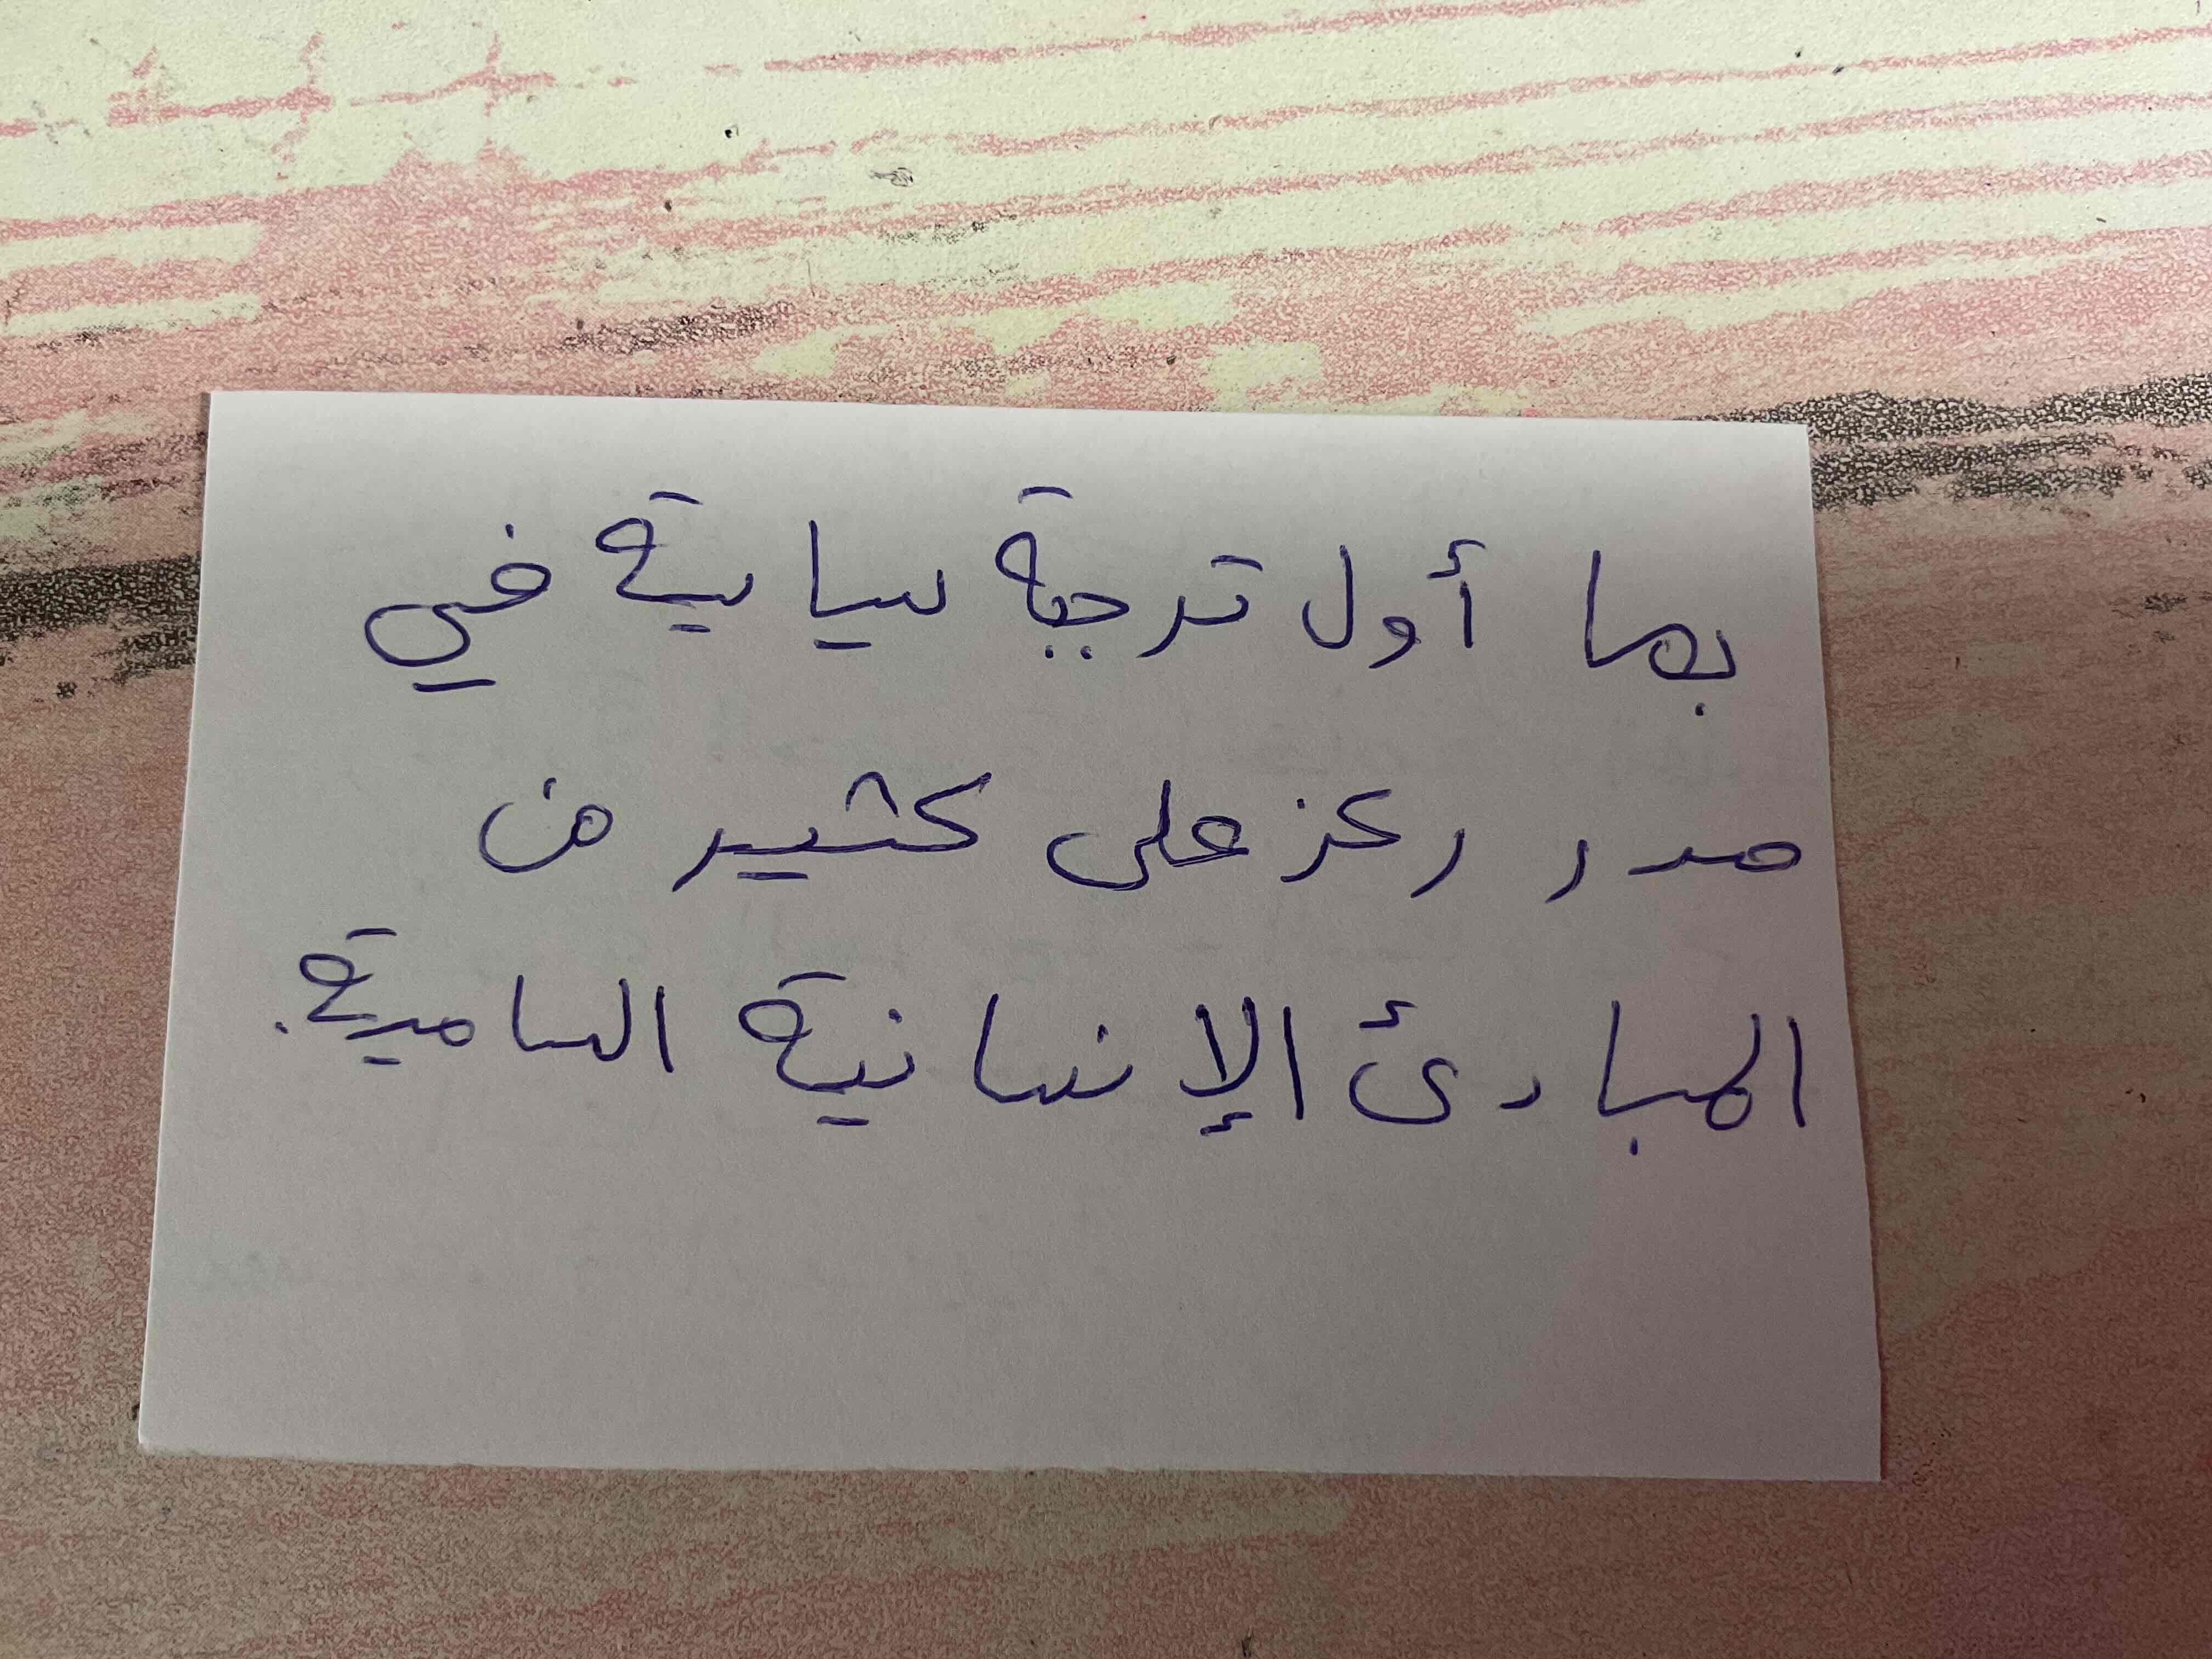 بها أول ترجية سياية في
صدر ركز على كثير من
المبادئ الإنسانية السامية.